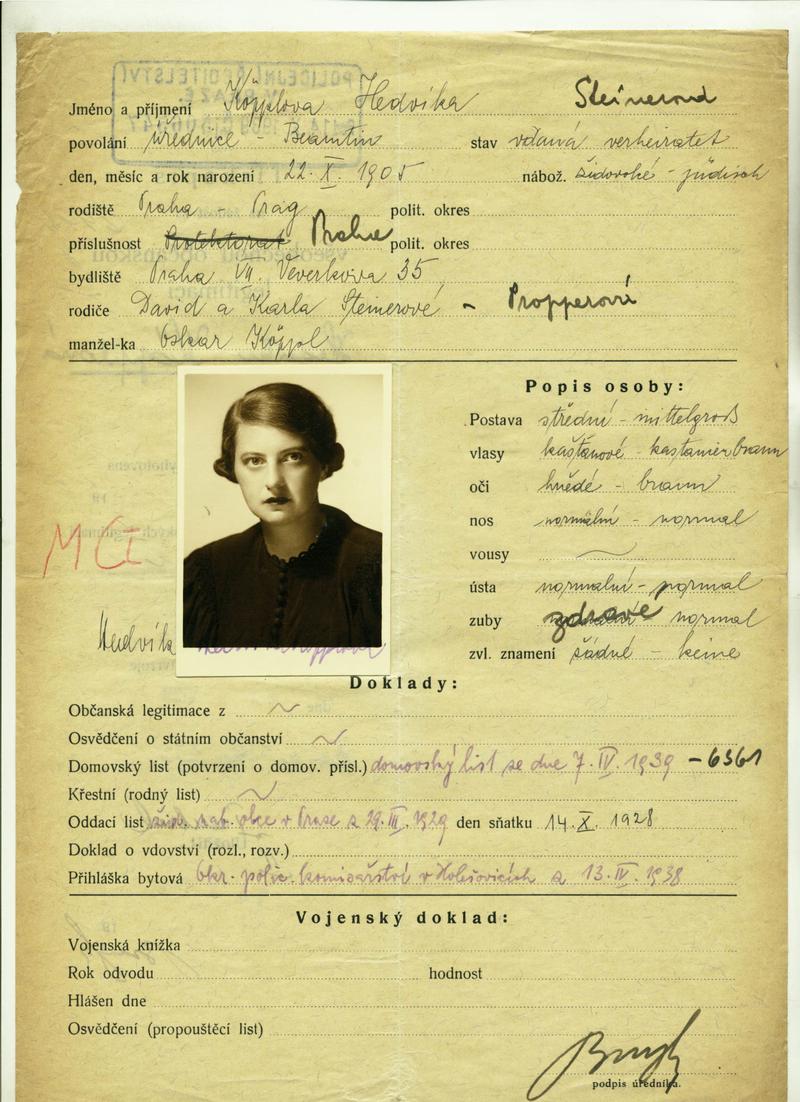 Jméno a příjmení Köpplova Hedvika Steinerová
povolání úřednice - Beamtin stav vdaná verheiratet
den, měsíc a rok narození 22. X. 1905 nábož. židovské - jüdisch
rodiště Praha - Prag polit. okres
příslušnost Protektorat Praha polit. okres
bydliště Praha VII. Veverkova 35
rodiče David a Karla Steinerové, - Propperová
manžel-ka Oskar Köppl
Popis osoby:
Postava střední - mittelgroß
vlasy kaštanové - kastanienbraun
oči hnědé - braun
nos normální - normal
vousy ~
ústa normalní - normal
zuby zdravé normal
zvl. znamení žádné - keine
MČI
Hedvika Köpplová
Doklady:
Občanská legitimace z ~
Osvědčení o státním občanství ~
Domovský list (potvrzení o domov. přísl.) domovský list ze dne 7. IV. 1939 - 6361
Křestní (rodný list) ~
Oddací list žid. nab. obce v Praze z 29. III. 1929 den sňatku 14. X. 1928
Doklad o vdovství (rozl., rozv.)
Přihláška bytová Okr. polic. komisařství v Holešovicích z 13. IV. 1938
Vojenský doklad:
Vojenská knížka
Rok odvodu hodnost
Hlášen dne
Osvědčení (propouštěcí list)
podpis úředníka.